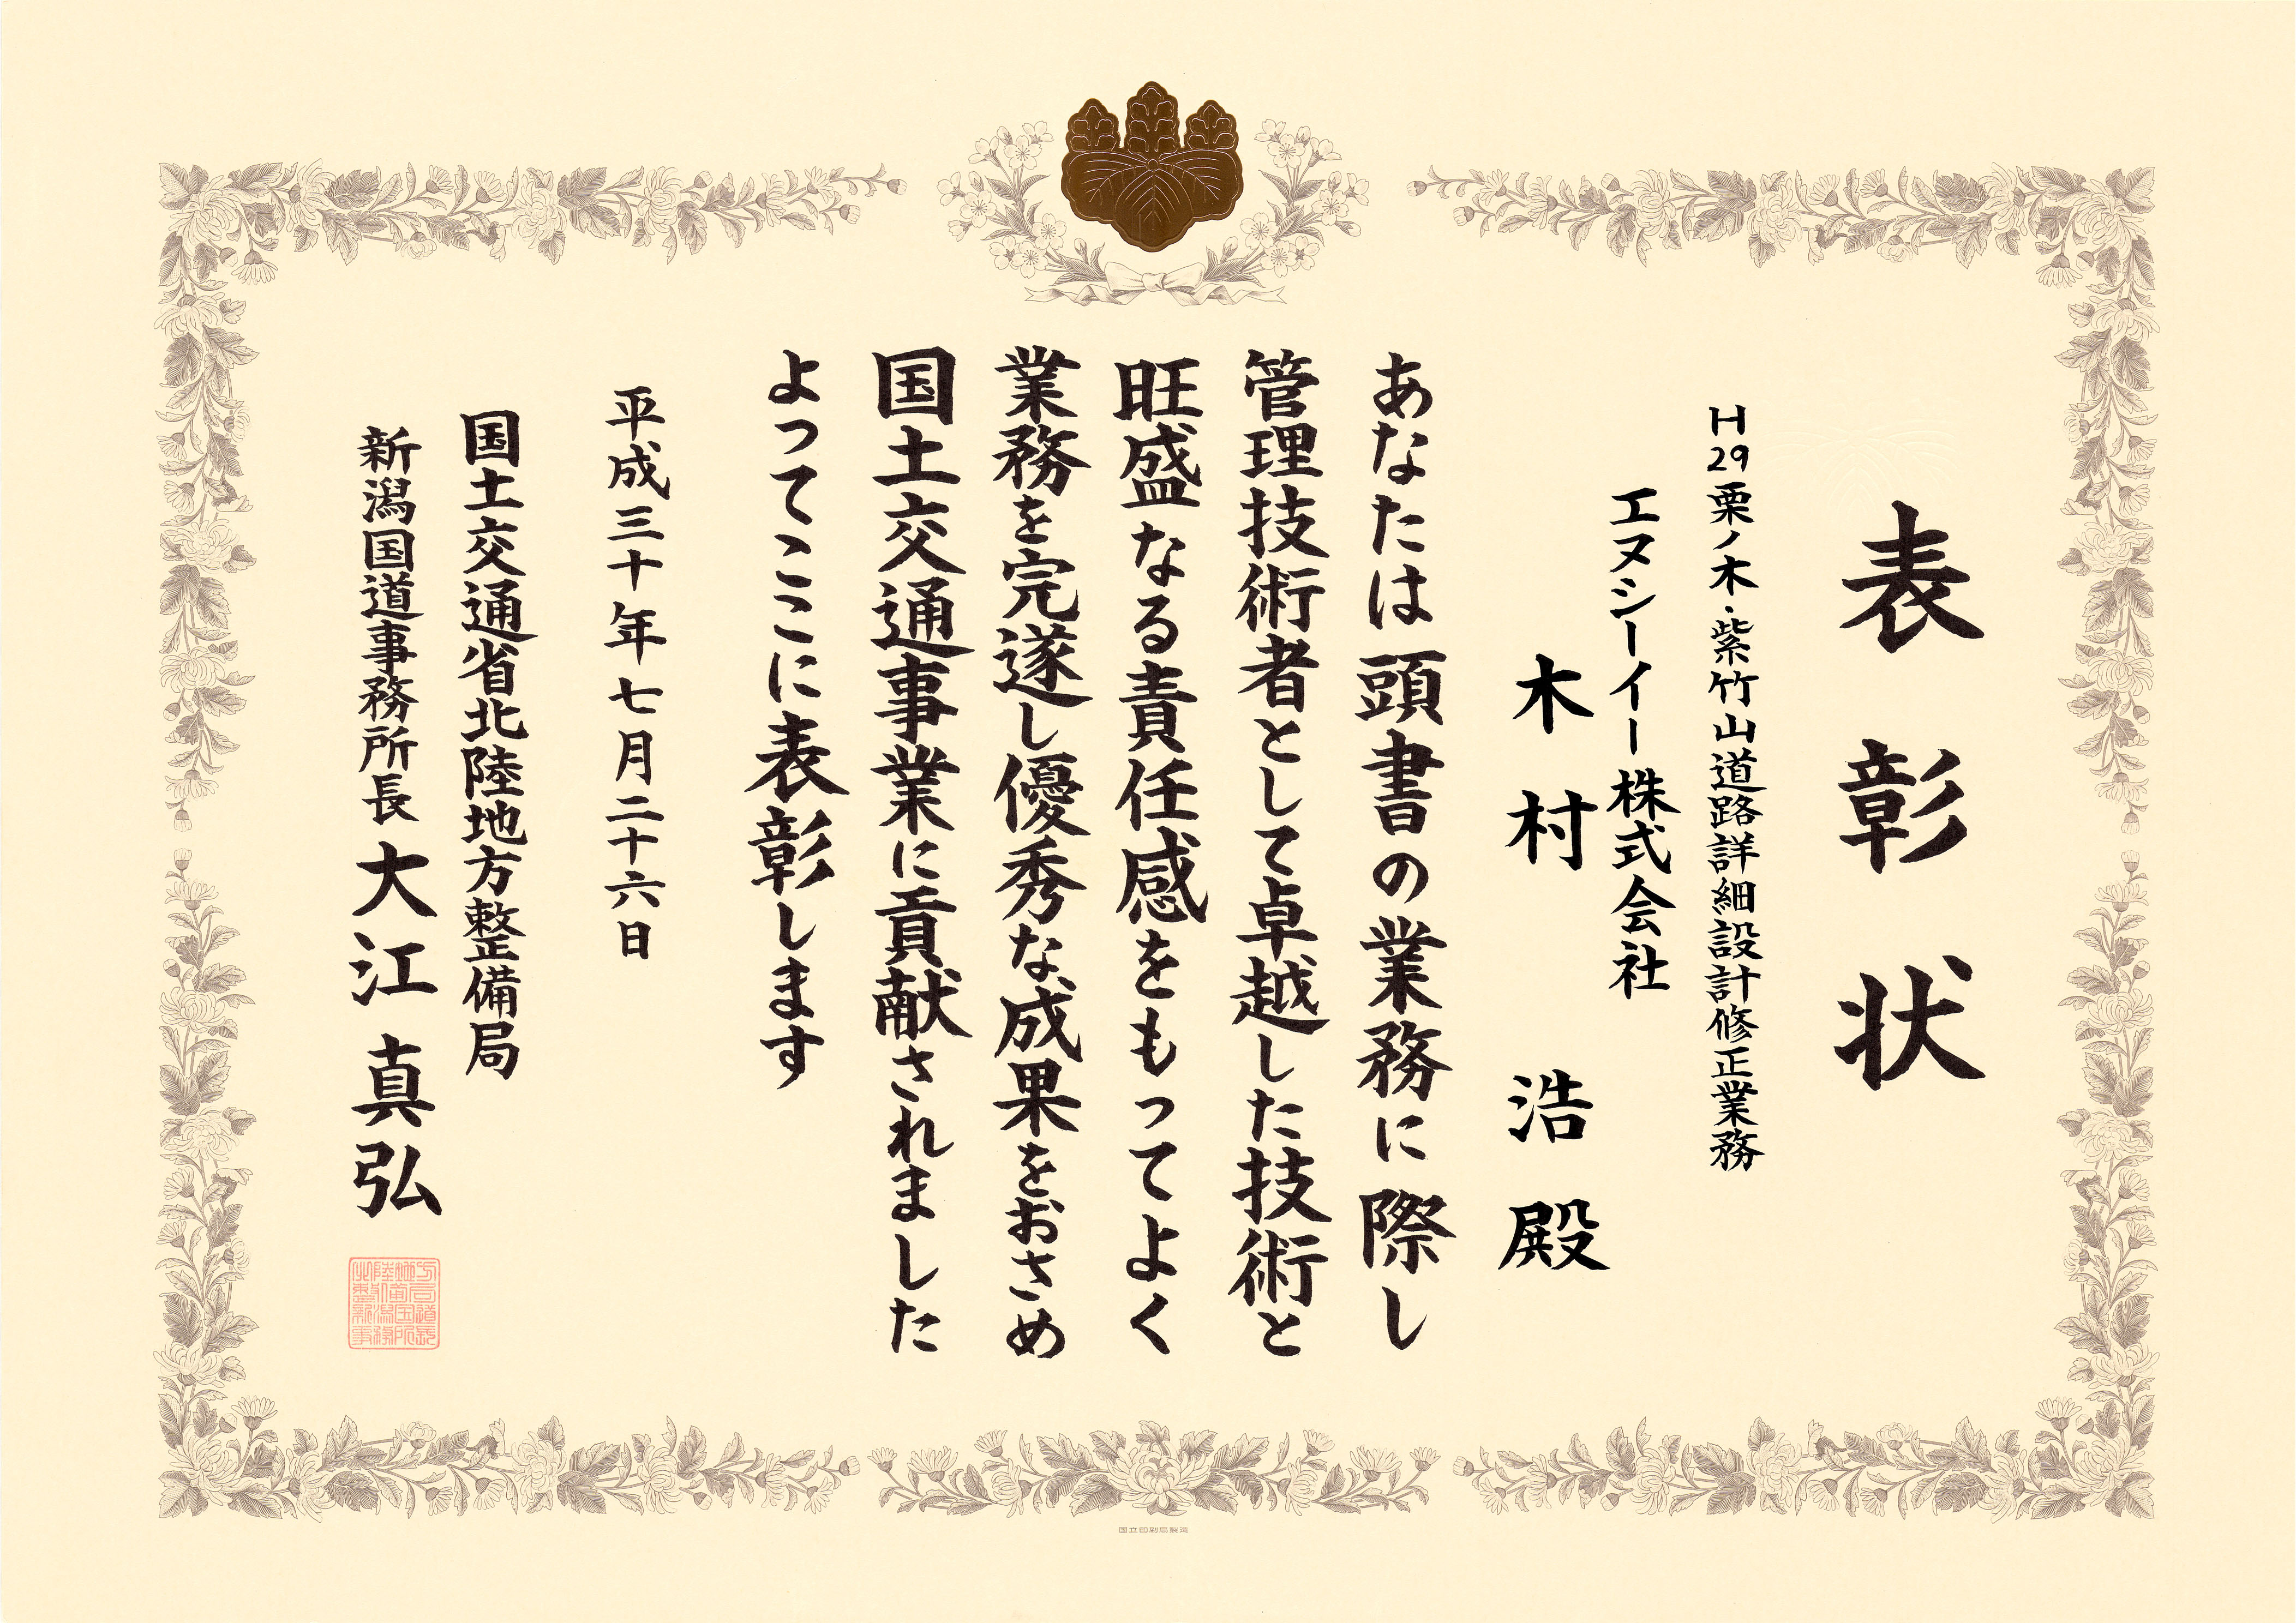 表彰状
H29栗ノ木・紫竹山道路詳細設計修正業務
エヌシーイー株式会社
木村 浩 殿
あなたは頭書の業務に際し
管理技術者として卓越した技術と
旺盛なる責任感をもってよく
業務を完遂し優秀な成果をおさめ
国土交通事業に貢献されました
よってここに表彰します
平成三十年七月二十六日
国土交通省北陸地方整備局
新潟国道事務所長 大江真弘
国立印刷局製造